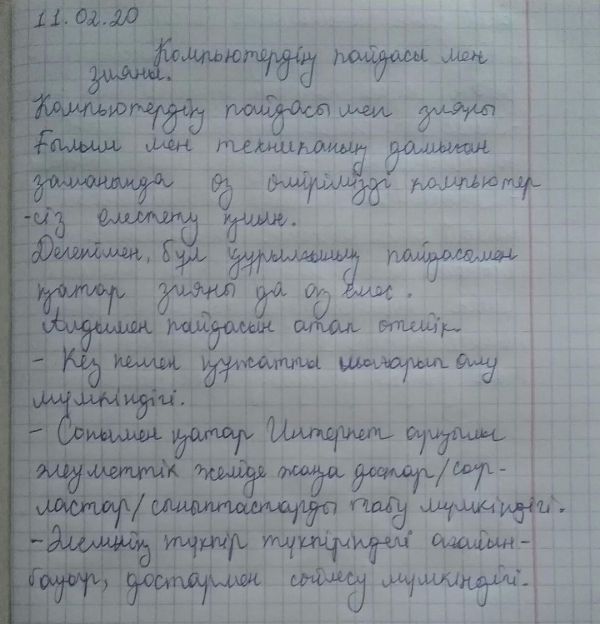 11.02.20
Компьютердің пайдасы мен
зияны.
Компьютердің пайдасы мен зияны
Ғылым мен техниканың дамыған
заманында өз өмірімізді компьютер
-сіз елестету қиын.
Дегенімен, бұл құрылғының пайдасымен
қатар зияны да аз емес.
Алдымен пайдасын атап өтейік.
- Кез келген құжатты шығарып алу
мүмкіндігі.
- Сонымен қатар Интернет арқылы
әлеуметтік желіде жаңа достар/сыр-
ластар/сыныптастарды табу мүмкіндігі.
- Әлемнің түкпір түкпіріндегі ағайын-
бауыр, достармен сөйлесу мүмкіндігі.